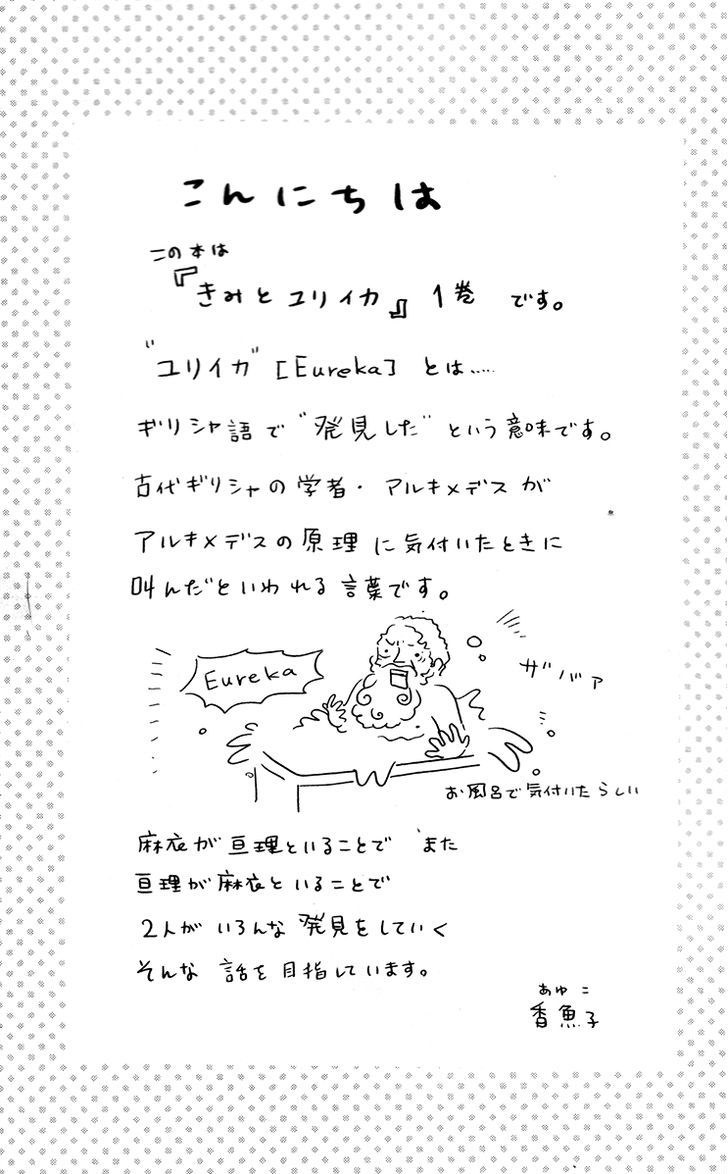 こんにちは
この本は
『きみとユリイカ』1巻 です。
"ユリイカ" [Eureka] とは.....
ギリシャ語で "発見した" という意味です。
古代ギリシャの学者・アルキメデスが
アルキメデスの原理に気付いたときに
叫んだといわれる言葉です。
Eureka
ザバァ
お風呂で気付いたらしい
麻衣が亘理といることで また
亘理が麻衣といることで
2人がいろんな発見をしていく
そんな話を目指しています。
あゆこ
香魚子